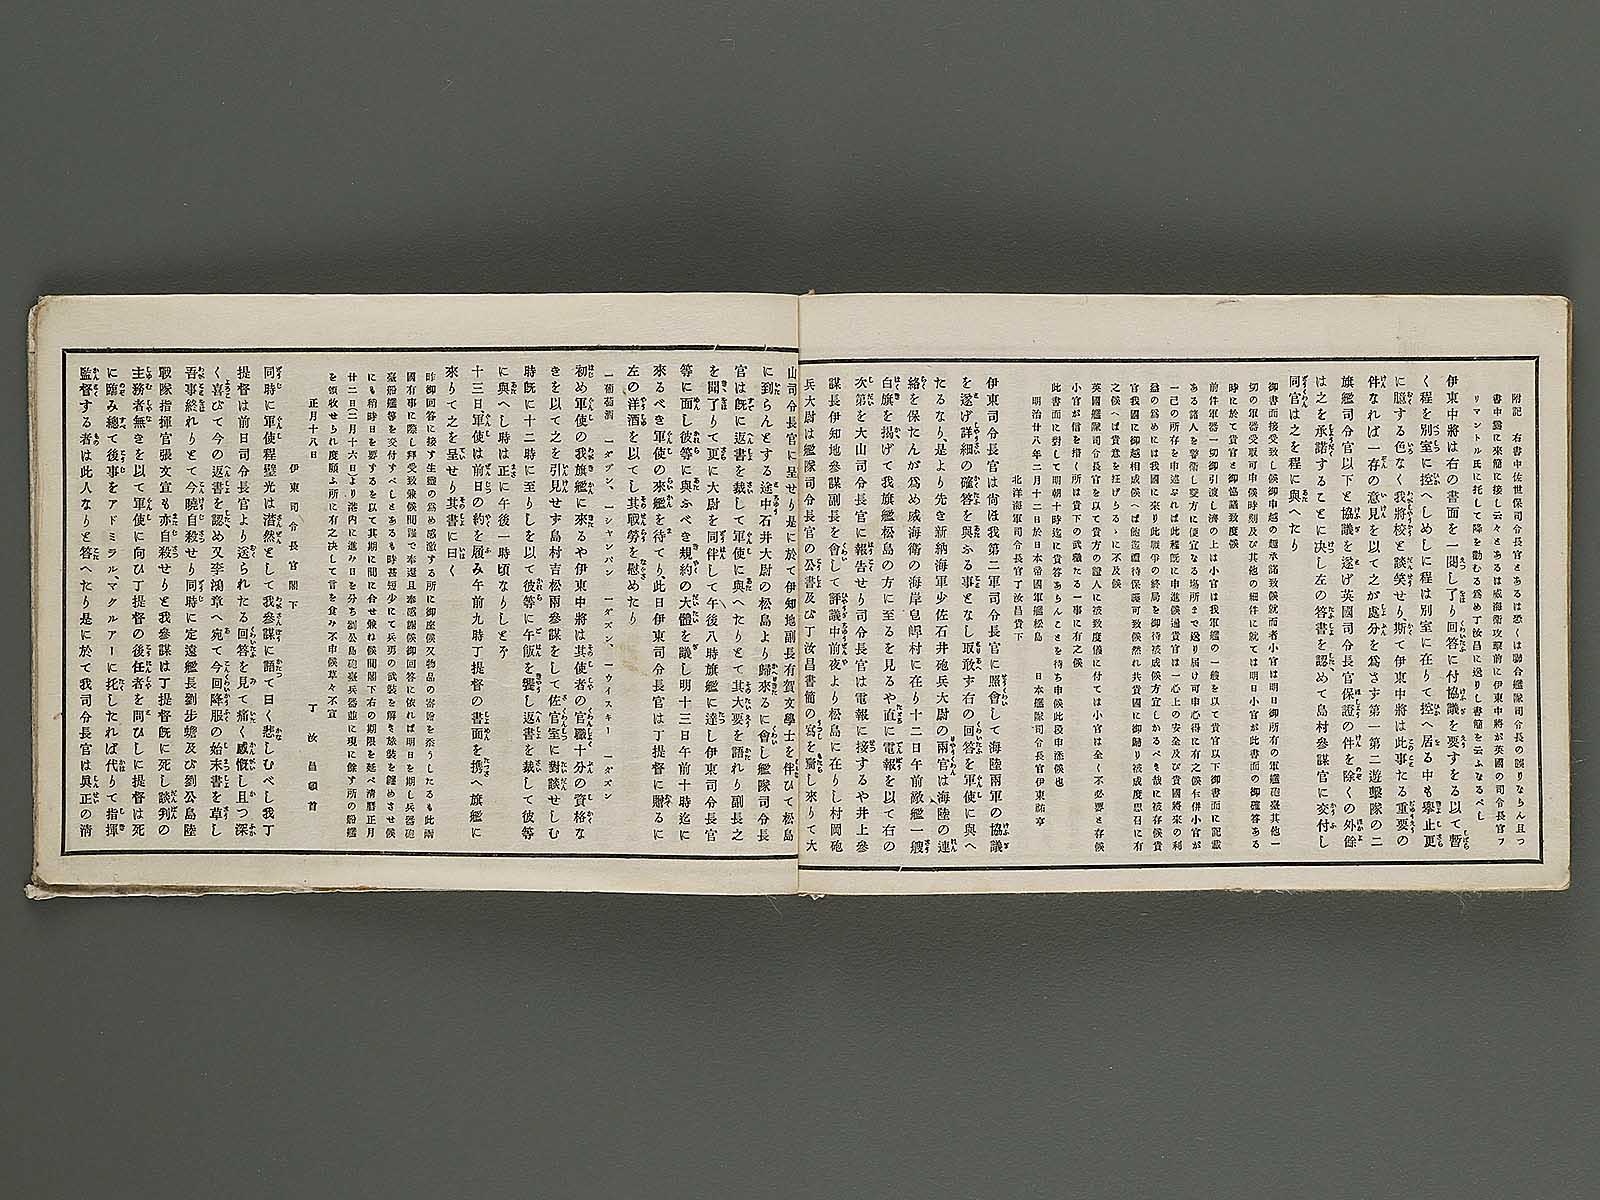 附記　右書中佐世保司令長官とあるは恐くは聯合艦隊司令長の誤りならん且つ
書中露に來簡に接し云々とあるは威海衛攻擊前に伊東中將が英國の司令長官フ
リマントル氏に托して降を勸むる爲め丁汝昌に送りし書簡を云ふなるべし
伊東中將は右の書面を一閲し了り回答に付協議を要するを以て暫
く程を別室に控へしめしに程は別室に在りて控へ居る中も擧止更
に臆する色なく我將校と談笑せり斯て伊東中將は此事たる重要の
件なれば一存の意見を以て之が處分を爲さす第一第二遊擊隊の二
旗艦司令官以下と協議を遂げ英國司令長官保證の件を除くの外餘
は之を承諾することに决し左の答書を認めて島村參謀官に交付し
同官は之を程に與へたり
御書面接受致し候御申越の趣承諾致候就而者小官は明日御所有の軍艦砲臺其他一
切の軍器受取可申候時刻及び其他の細件に就ては明日小官が此書面の御確答ある
時に於て貴官と御協議致度候
前件軍器一切御引渡し濟の上は小官は我軍艦の一艘を以て貴官以下御書面に記載
ある諸人を警衛し雙方に便宜なる場所まで送り屆け可申心得に有之候乍併小官が
一己の所存を申述ぶれば此種既に申進候通貴官は一心上の安全及び貴國將來の利
益の爲めには我國に來り此戰爭の終局を御待被成候方宜しかるべき哉に被存候貴
官我國に御越相成候へば他迄禮待保護可致候然れ共貴國に御歸り被成度思召に有
之候へば貴意を抂げらるゝに不及候
英國艦隊司令長官を以て貴方の證人に被致度儀に付ては小官は全く不必要と存候
小官が信を措く所は貴下の武職たる一事に有之候
此書面に對して明朝十時迄に貴答あらんことを待ち申候此段申進候也
明治廿八年二月十二日於日本帝國軍艦松島　日本艦隊司令長官伊東祐亨
北洋海軍司令長官丁汝昌貴下
伊東司令長官は尚ほ我第二軍司令長官に照會して海陸兩軍の協議
を遂げ詳細の確答を與ふる事となし取敢す右の回答を軍使に與へ
たるなり、是より先き新納海軍少佐石井砲兵大尉の兩官は海陸の連
絡を保たんが爲め威海衛の海岸皂埠村に在り十二日午前敵艦一艘
白旗を揭げて我旗艦松島の方に至るを見るや直に電報を以て右の
次第を大山司令長官に報告せり司令長官は電報に接するや井上參
謀長伊知地參謀副長を會して評議中前夜より松島に在りし村岡砲
兵大尉は艦隊司令長官の公書及び丁汝昌書簡の寫を齎し來りて大
山司令長官に呈せり是に於て伊知地副長有賀文學士を伴ひて松島
に到らんとする途中石井大尉の松島より歸來るに會し艦隊司令長
官は既に返書を裁して軍使に與へたりとて其大要を語れり副長之
を聞了りて更に大尉を同伴して午後八時旗艦に達し伊東司令長官
等に面し彼等に與ふべき規約の大體を議し明十三日午前十時迄に
來るべき軍使の來艦を待てり此日伊東司令長官は丁提督に贈るに
左の洋酒を以てし其戰勞を慰めたり
一葡萄酒　一ダズン、一シヤンパン　一ダズン、一ウイスキー　一ダズン
初め軍使の我旗艦に來るや伊東中將は其使者の官職十分の資格な
きを以て之を引見せす島村吉松兩參謀をして佐官室に對談せしむ
時既に十二時に至りしを以て彼等に午飯を饗し返書を裁して彼等
に與へし時は正に午後一時頃なりしと予
十三日軍使は前日の約を履み午前九時丁提督の書面を携へ旗艦に
來りて之を呈せり其書に曰く
昨御回答に接す生靈の爲め感激する所に御座候又物品の寄贈を忝うしたるも此兩
國有事に際し拜受致兼候間謹で奉還且奉感謝候御回答に依れば明日を期し兵器砲
臺船艦等を交付すべしとあるも時甚短少にて兵勇の武裝を解き旅裝を纏めさせ候
にも稍時日を要するを以て其期に間に合せ兼ね候間閣下右の期限を延べ淸曆正月
廿二日(二月十六日)より港內に進み日を分ち劉公島砲臺兵器並に現に餘す所の船艦
を領收せられ度願ふ所に有之決して言を食み不申候草々不宣
正月十八日　　丁汝昌頓首
伊東司令長官閣下
同時に軍使程璧光は潸然として我參謀に語て曰く悲しむべし我丁
提督は前日司令長官より送られたる回答を見て痛く感慨し且つ深
く喜びて今の返書を認め又李鴻章へ宛て今回降服の始末書を草し
吾事終れりとて今曉自殺せり同時に定遠艦長劉步蟾及び劉公島陸
戰隊指揮官張文宣も亦自殺せりと我參謀は丁提督既に死し談判の
主務者無きを以て軍使に向ひ丁提督の後任者を問ひしに提督は死
に臨み總て後事をアドミラル、マクルアーに托したれば代りて指揮
監督する者は此人なりと答へたり是に於て我司令長官は眞正の淸